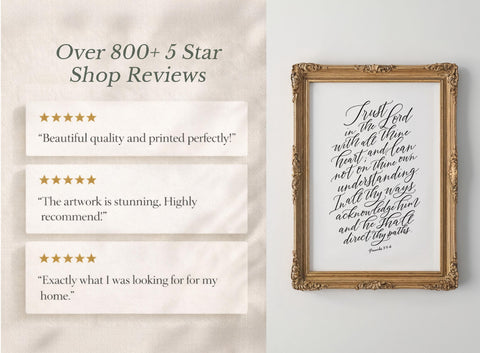 Over 800+ 5 Star
Shop Reviews
“Beautiful quality and printed perfectly!”
“The artwork is stunning. Highly
recommend!”
“Exactly what I was looking for for my
home.”
Trust
in the Lord
with all thine
heart, and lean
not on thine own
understanding.
In all thy ways
acknowledge him
and he shall
direct thy paths.
Proverbs 3:5-6